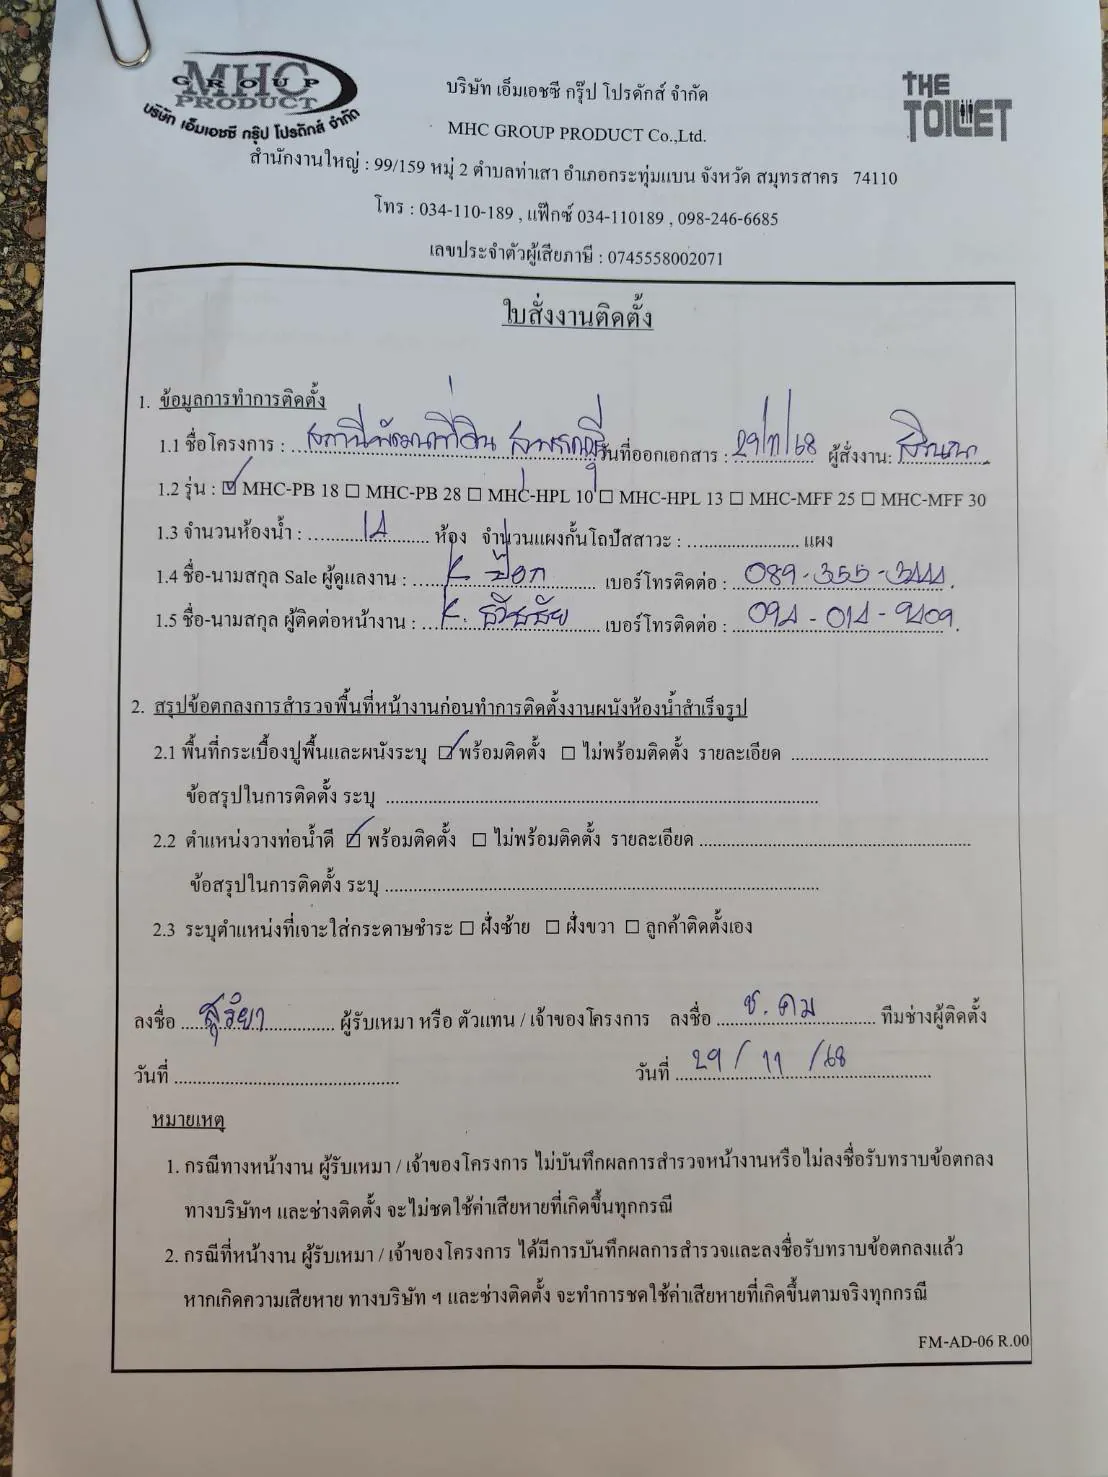 MHC
GROUP
PRODUCT
บริษัท เอ็มเอชซี กรุ๊ป โปรดักส์ จำกัด
บริษัท เอ็มเอชซี กรุ๊ป โปรดักส์ จำกัด
THE
TOILET
MHC GROUP PRODUCT Co.,Ltd.
สำนักงานใหญ่ : 99/159 หมู่ 2 ตำบลท่าเสา อำเภอกระทุ่มแบน จังหวัด สมุทรสาคร 74110
โทร : 034-110-189 , แฟ๊กซ์ 034-110189 , 098-246-6685
เลขประจำตัวผู้เสียภาษี : 0745558002071
ใบสั่งงานติดตั้ง
1. ข้อมูลการทำการติดตั้ง
1.1 ชื่อโครงการ : สถานีพัฒนาที่ดิน สุพรรณบุรี วันที่ออกเอกสาร : 29/11/68 ผู้สั่งงาน:
1.2 รุ่น : ☑ MHC-PB 18 ☐ MHC-PB 28 ☐ MHC-HPL 10 ☐ MHC-HPL 13 ☐ MHC-MFF 25 ☐ MHC-MFF 30
1.3 จำนวนห้องน้ำ : 14 ห้อง จำนวนแผงกั้นโถปัสสาวะ : แผง
1.4 ชื่อ-นามสกุล Sale ผู้ดูแลงาน : K ป๊อก เบอร์โทรติดต่อ : 089-355-3444.
1.5 ชื่อ-นามสกุล ผู้ติดต่อหน้างาน : K. ธวัชชัย เบอร์โทรติดต่อ : 094-014-9409.
2. สรุปข้อตกลงการสำรวจพื้นที่หน้างานก่อนทำการติดตั้งงานผนังห้องน้ำสำเร็จรูป
2.1 พื้นที่กระเบื้องปูพื้นและผนังระบุ ☑ พร้อมติดตั้ง ☐ ไม่พร้อมติดตั้ง รายละเอียด
ข้อสรุปในการติดตั้ง ระบุ
2.2 ตำแหน่งวางท่อน้ำดี ☑ พร้อมติดตั้ง ☐ ไม่พร้อมติดตั้ง รายละเอียด
ข้อสรุปในการติดตั้ง ระบุ
2.3 ระบุตำแหน่งที่เจาะใส่กระดาษชำระ ☐ ฝั่งซ้าย ☐ ฝั่งขวา ☐ ลูกค้าติดตั้งเอง
ลงชื่อ สุริยา ผู้รับเหมา หรือ ตัวแทน / เจ้าของโครงการ ลงชื่อ ช. คม ทีมช่างผู้ติดตั้ง
วันที่ วันที่ 29 / 11 / 68
หมายเหตุ
1. กรณีทางหน้างาน ผู้รับเหมา / เจ้าของโครงการ ไม่บันทึกผลการสำรวจหน้างานหรือไม่ลงชื่อรับทราบข้อตกลง
ทางบริษัทฯ และช่างติดตั้ง จะไม่ชดใช้ค่าเสียหายที่เกิดขึ้นทุกกรณี
2. กรณีที่หน้างาน ผู้รับเหมา / เจ้าของโครงการ ได้มีการบันทึกผลการสำรวจและลงชื่อรับทราบข้อตกลงแล้ว
หากเกิดความเสียหาย ทางบริษัท ฯ และช่างติดตั้ง จะทำการชดใช้ค่าเสียหายที่เกิดขึ้นตามจริงทุกกรณี
FM-AD-06 R.00